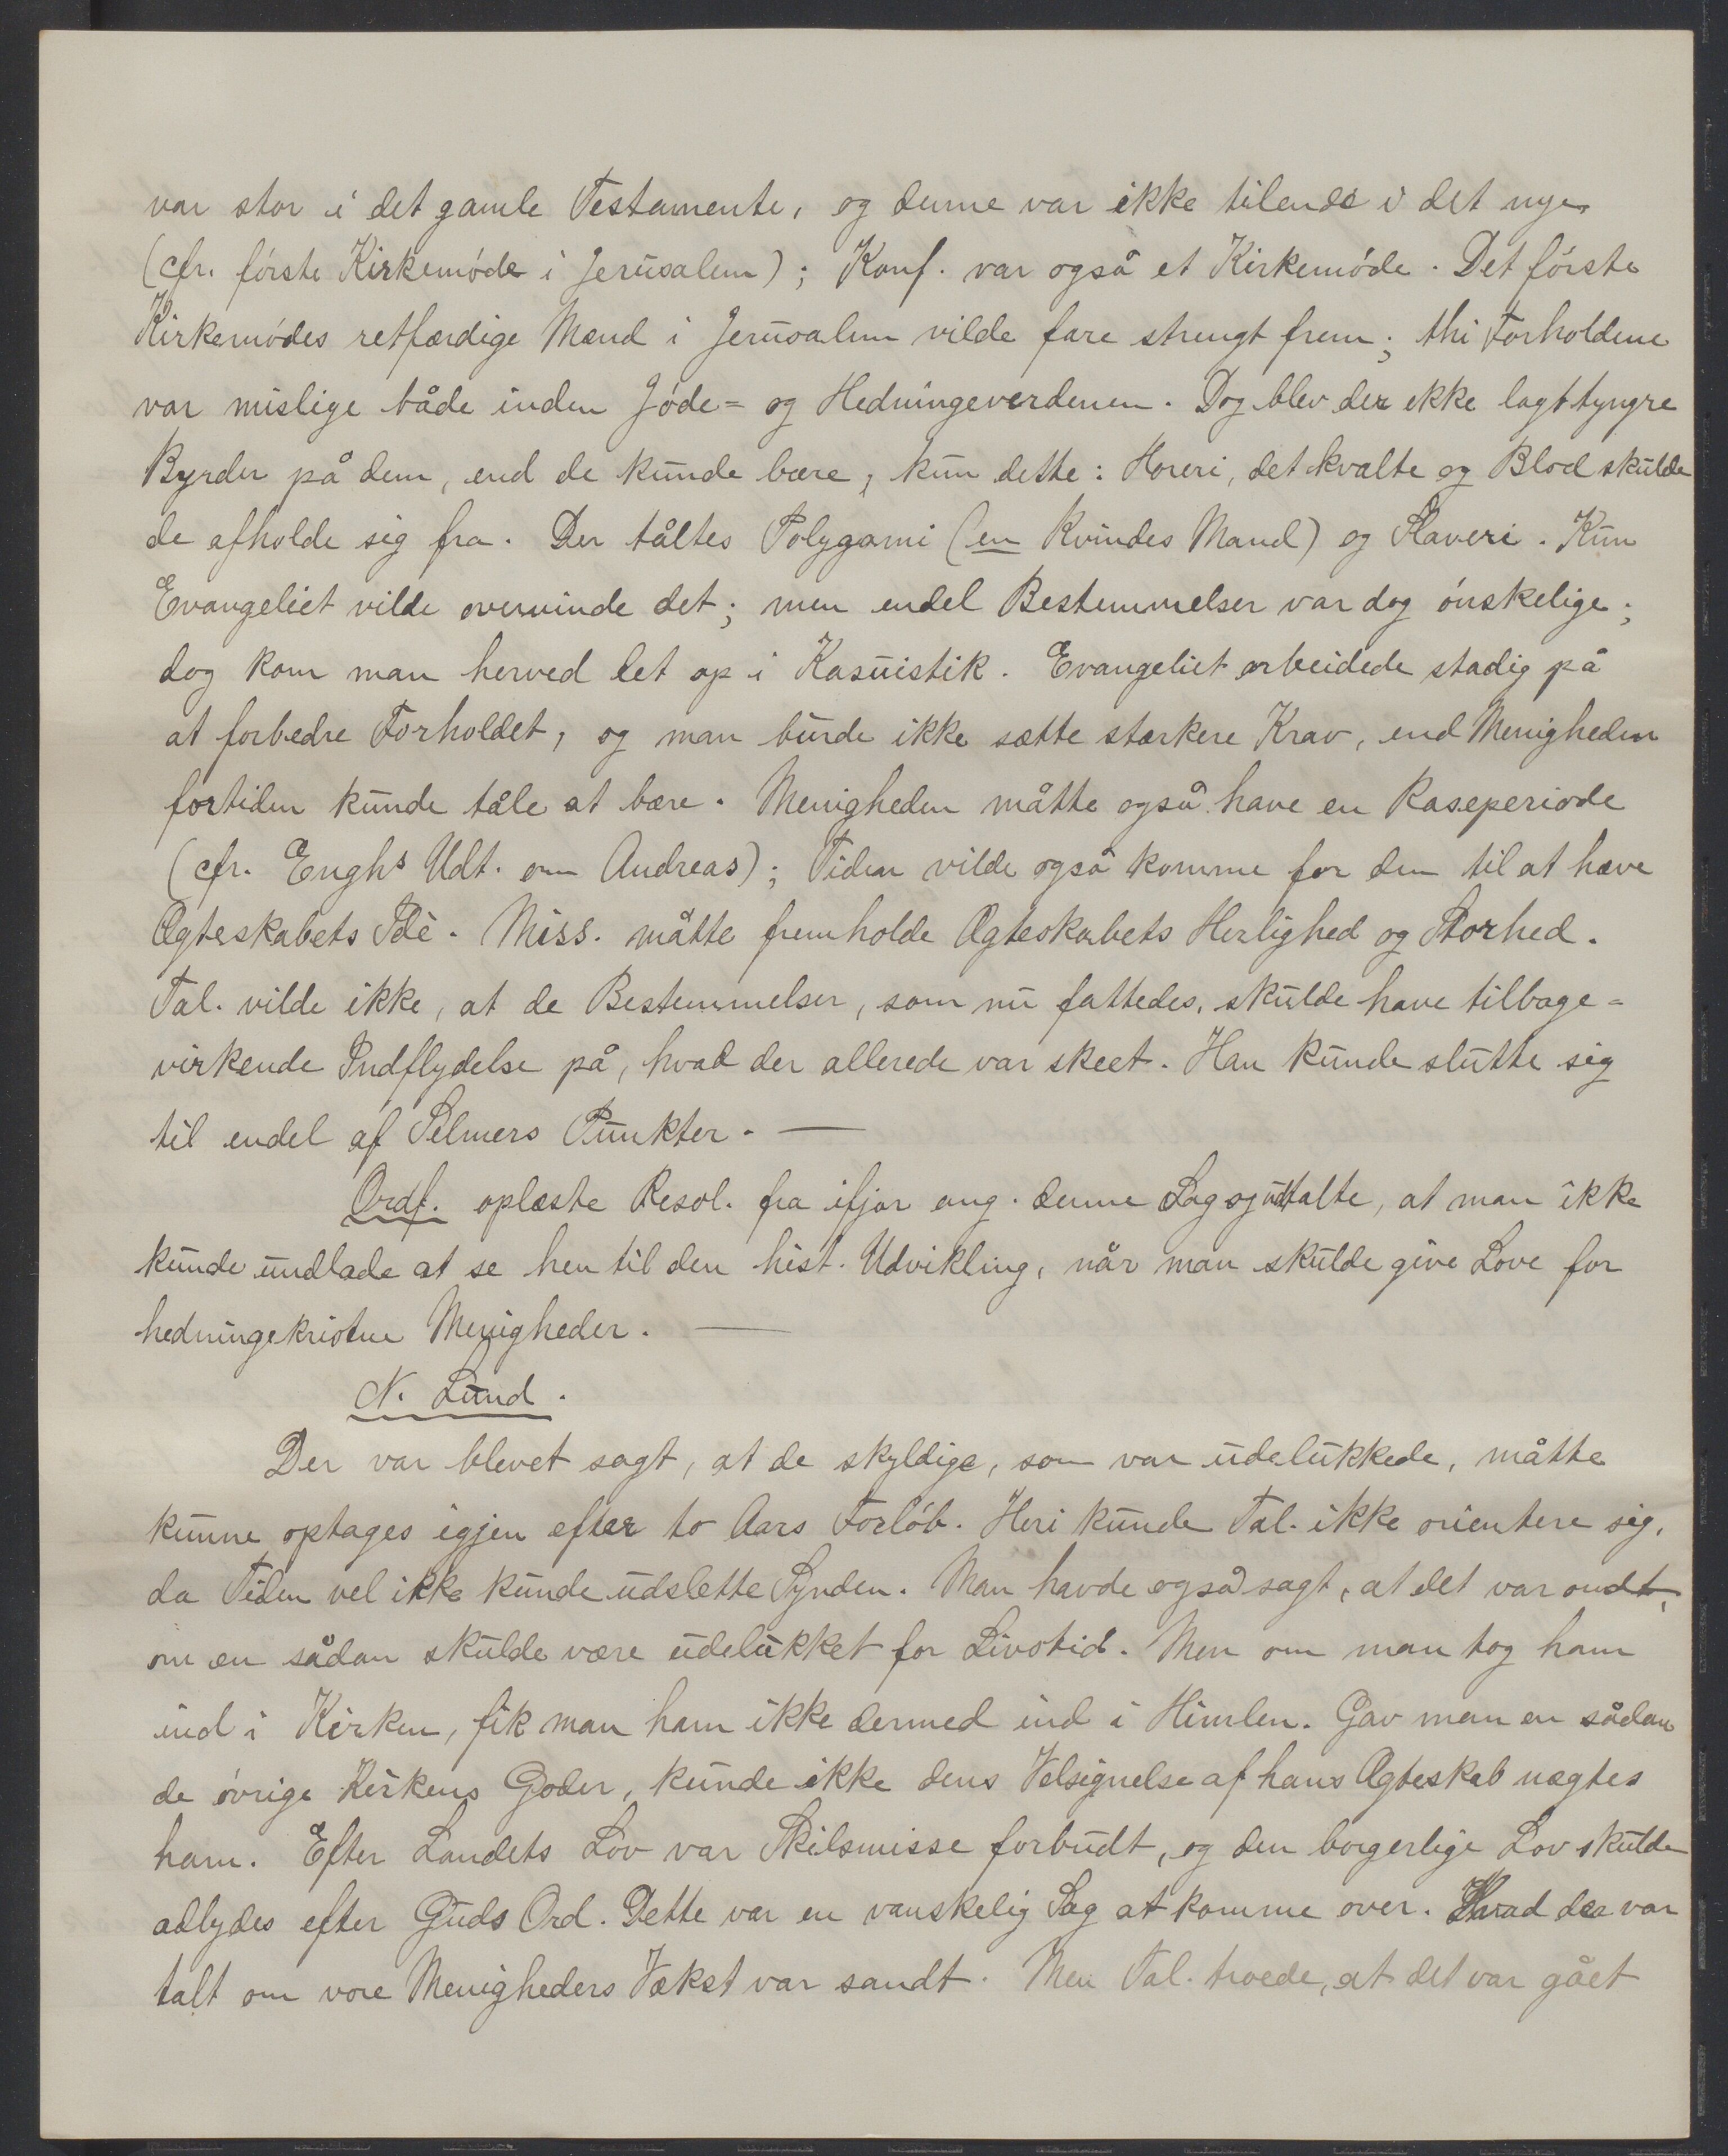 var stor i det gamle Testamente, og denne var ikke tilende i det nye
(cfr. første Kirkemøde i Jerusalem); Konf. var også et Kirkemøde. Det første
Kirkemødes retfærdige Mænd i Jerusalem vilde fare strengt frem; thi Forholdene
var mislige både inden Jøde- og Hedningeverdenen. Dog blev der ikke lagt tyngre
Byrder på dem, end de kunde bære; kun dette: Horeri, det kvalte og Blod skulde
de afholde sig fra. Der tåltes Polygami (en Kvindes Mand) og Slaveri. Kun
Evangeliet vilde overvinde det; men endel Bestemmelser var dog ønskelige;
dog kom man herved let op i Kasuistik. Evangeliet arbeidede stadig på
at forbedre Forholdet, og man burde ikke sætte stærkere Krav, end Menigheden
fortiden kunde tåle at bære. Menigheden måtte også have en Raseperiode
(cfr. Enghs Udt. om Andreas); Tiden vilde også komme for den til at hæve
Ægteskabets Idè. Miss. måtte fremholde Ægteskabets Herlighed og Storhed.
Tal. vilde ikke, at de Bestemmelser, som nu fattedes, skulde have tilbage-
virkende Indflydelse på, hvad der allerede var skeet. Han kunde slutte sig
til endel af Selmers Punkter. —
Ordf. oplæste Resol. fra ifjor ang. denne Sag og udtalte, at man ikke
kunde undlade at se hen til den hist. Udvikling, når man skulde give Love for
hedningekristne Menigheder. —
N. Lund.
Der var blevet sagt, at de skyldige, som var udelukkede, måtte
kunne optages igjen efter to Aars Forløb. Heri kunde Tal. ikke orientere sig,
da Tiden vel ikke kunde udslette Synden. Man havde også sagt, at det var ondt,
om en sådan skulde være udelukket for Livstid. Men om man tog ham
ind i Kirken, fik man ham ikke dermed ind i Himlen. Gav man en sådan
de øvrige Kirkens Goder, kunde ikke dens Velsignelse af hans Ægteskab nægtes
ham. Efter Landets Lov var Skilsmisse forbudt, og den borgerlige Lov skulde
adlydes efter Guds Ord. Dette var en vanskelig Sag at komme over. Hvad der var
talt om vore Menigheders Vækst var sandt. Men Tal. troede, at det var gået